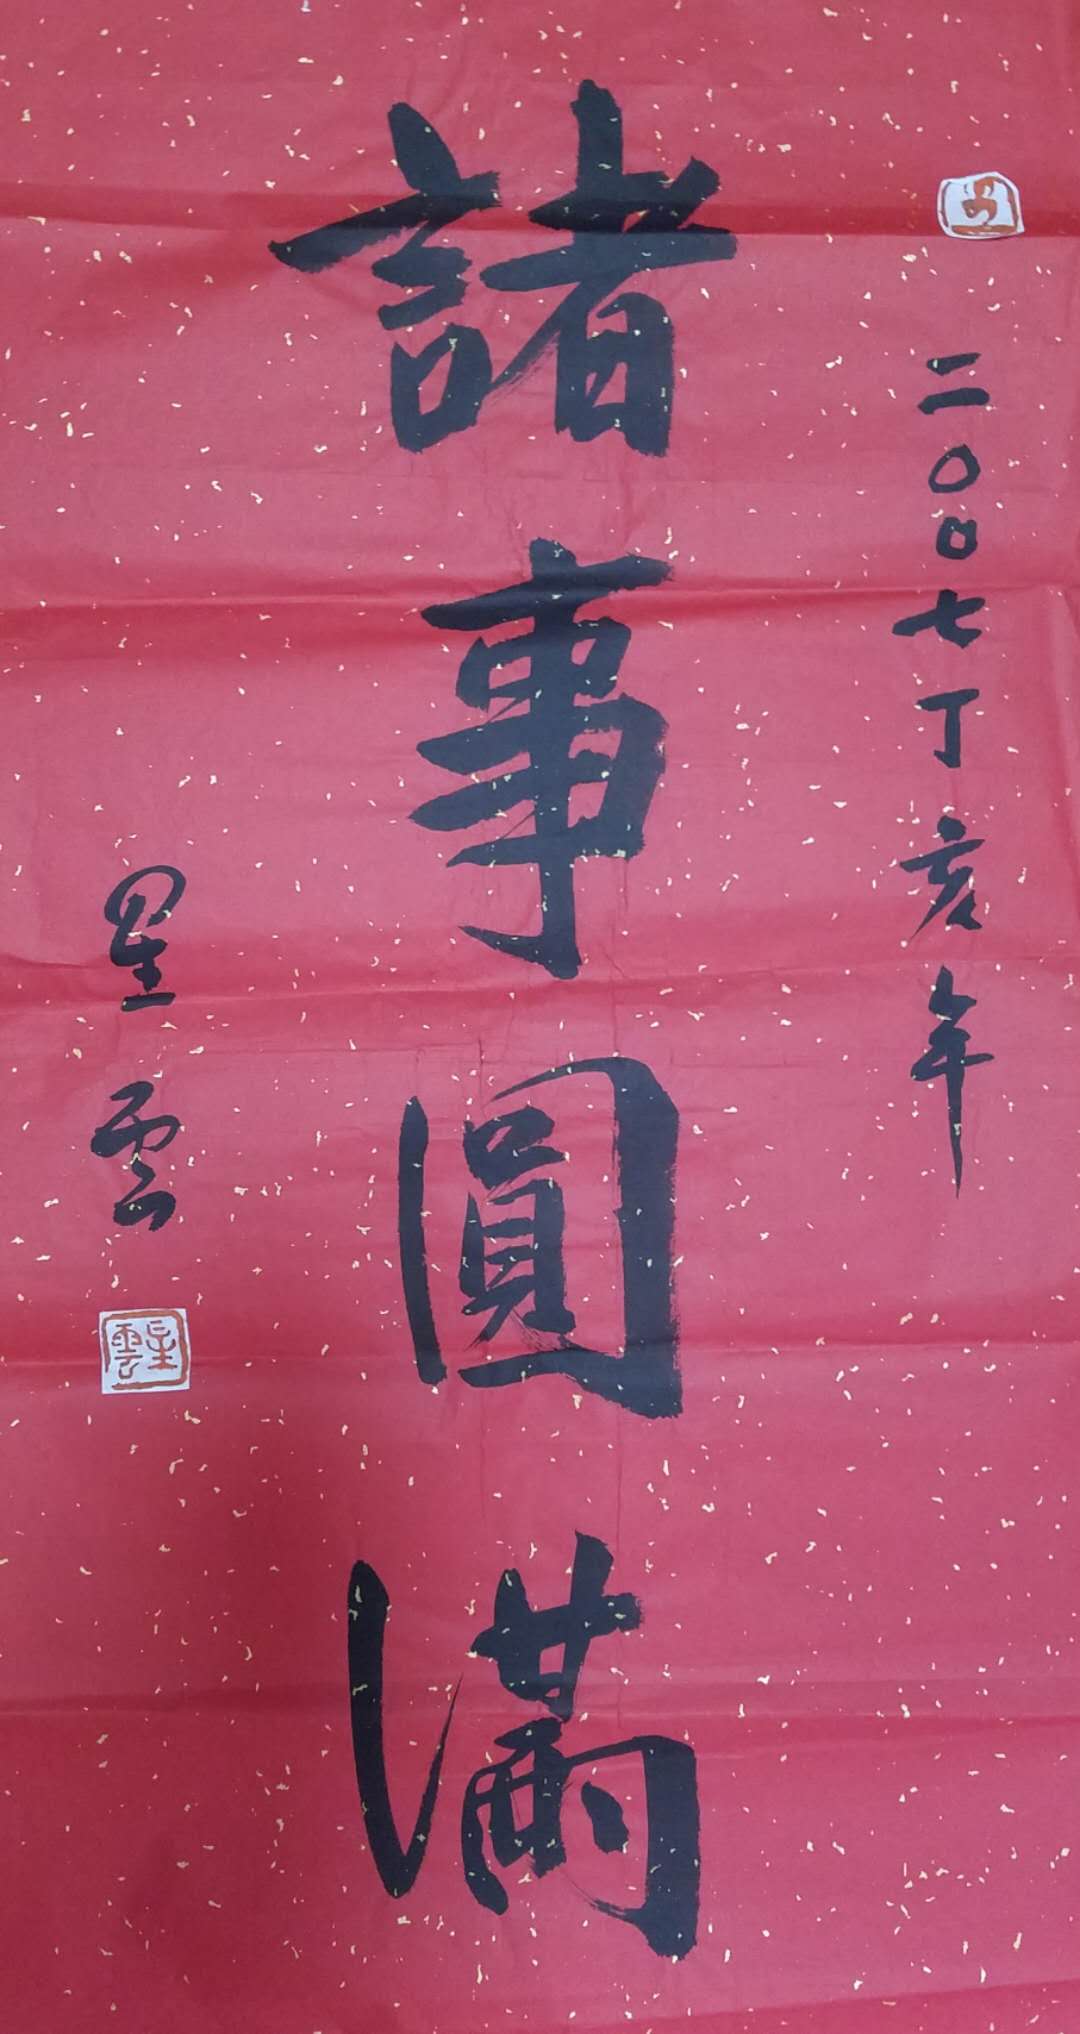 二〇〇七丁亥年
諸事圓滿
星雲
星雲